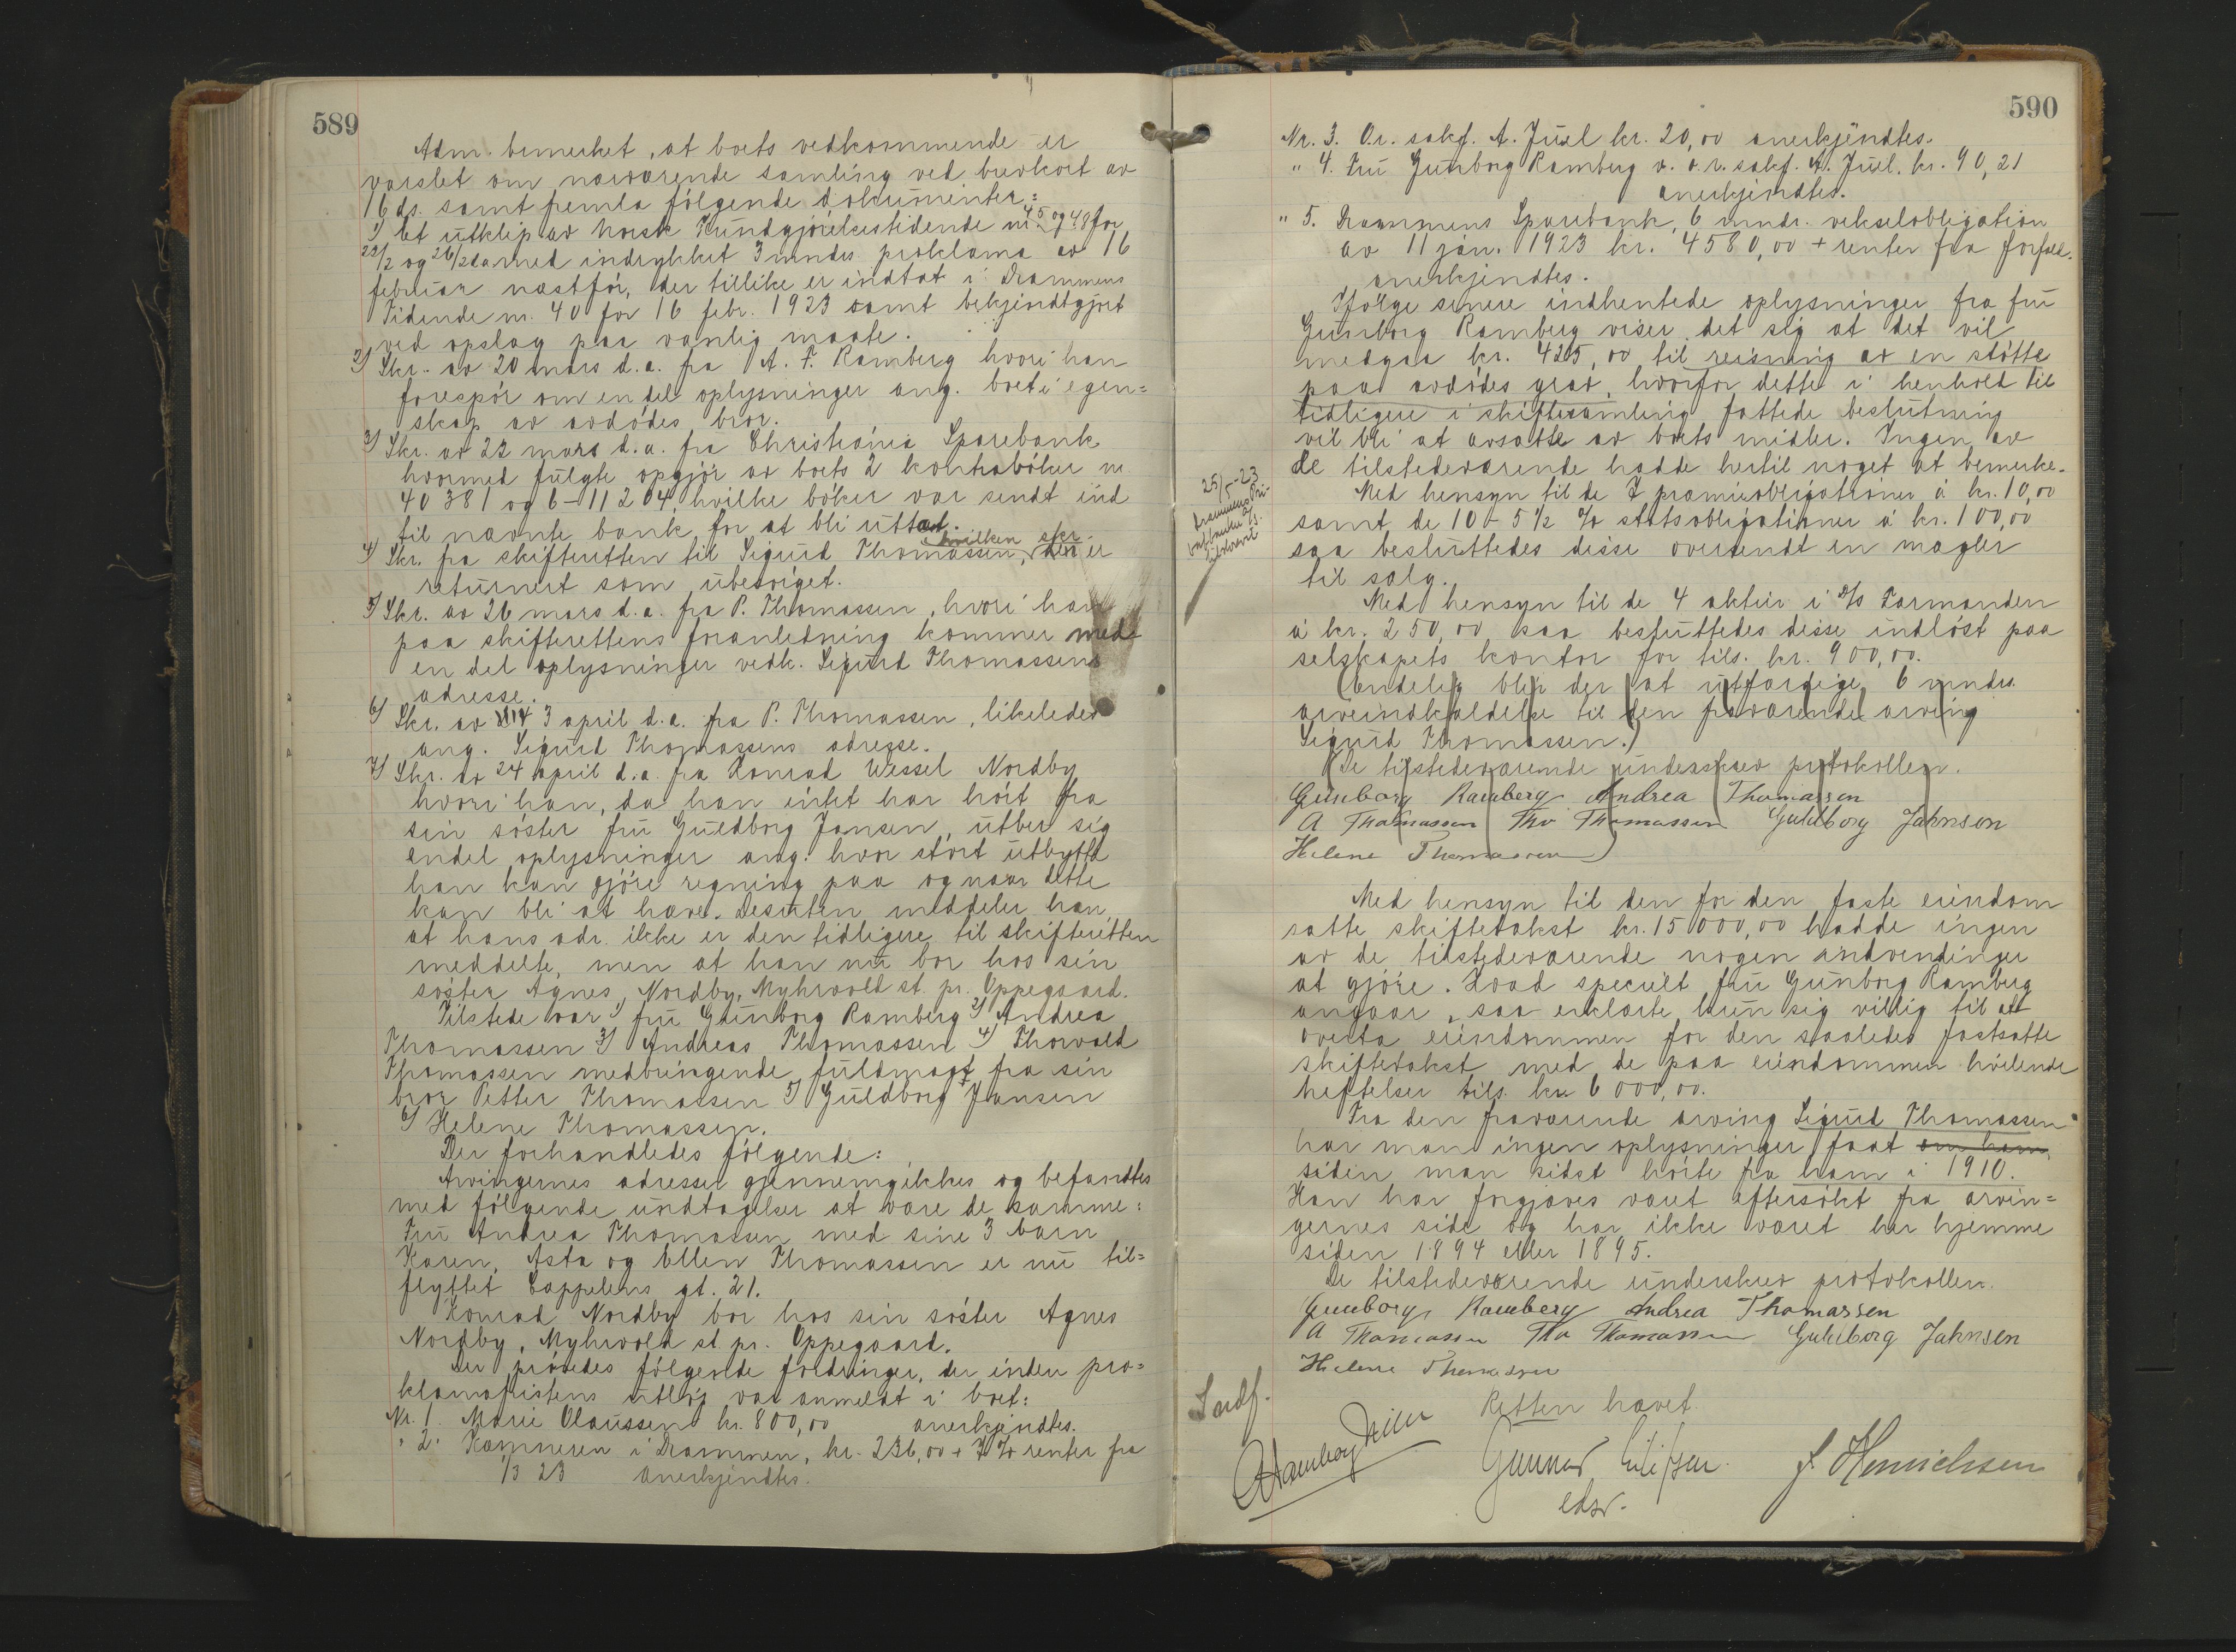 589
Adm. bemerket, at boets vedkommende er
varslet om nærværende samling ved brevkort av
16 ds. samt fremla følgende dokumenter:
1) Et utklip av Norsk Kundgjørelsestidende nr. 45 og 48 for
22/2 og 26/2 d.a. med indrykket 3 mndrs. proklama av 16
februar næstfør, der tillike er indtat i Drammens
Tidende nr. 40 for 16 febr. 1923 samt bekjendtgjort
ved opslag paa vanlig maate.
2) Skr. av 20 mars d.a. fra A. F. Ramberg hvori han
forespør om en del oplysninger ang. boet i egen=
skap av avdødes bror.
3) Skr. av 22 mars d.a. fra Christiania Sparebank
hvormed fulgte opgjør av boets 2 kontrabøker nr.
40381 og 6-11204, hvilke bøker var sendt ind
til nævnte bank for at bli uttat.
hvilken skr.
4) Skr. fra skifteretten til Sigurd Thomassen, den er
returnert som ubesørget.
5) Skr. av 26 mars d.a. fra P. Thomassen, hvori han
paa skifterettens foranledning kommer med
en del oplysninger vedk. Sigurd Thomassens
adresse.
6) Skr. av 3 april d.a. fra P. Thomassen, likeledes
ang. Sigurd Thomassens adresse.
7) Skr. av 24 april d.a. fra Konrad Wessel Nordby
hvori han, da han intet har hört fra
sin søster fru Guldborg Jansen, utber sig
endel oplysninger ang. hvor stort utbytte
han kan gjöre regning paa og naar dette
kan bli at hæve. Desuten meddeler han
at hans adr. ikke er den tidligere til skifteretten
meddelte, men at han nu bor hos sin
søster Agnes Nordby, Myhrvold st. pr. Oppegaard.
Tilstede var 1) fru Gunborg Ramberg 2) Andrea
Thomassen 3) Andreas Thomassen 4) Thorvald
Thomassen medbringende fuldmagt fra sin
bror Petter Thomassen 5) Guldborg Jansen
6) Helene Thomassen.
Der forhandledes følgende:
Arvingernes adresser gjennemgikkes og befandtes
med følgende undtagelser at være de samme:
Fru Andrea Thomassen med sine 3 barn
Karen, Asta og Ellen Thomassen er nu til=
flyttet Cappelens gt. 21.
Konrad Nordby bor hos sin søster Agnes
Nordby, Myhrvold st. pr. Oppegaard.
Der prøvedes følgende fordringer, der inden pro=
klamafristens utløp var anmeldt i boet:
Nr. 1. Marie Olaussen kr. 800,00 anerkjendtes.
" 2. Kæmneren i Drammen, kr. 236,00 + 7% renter fra
1/3 23 anerkjendtes.
590
Nr. 3. O.r. sakf. A. Juel kr. 20,00 anerkjendtes.
" 4. Fru Gunborg Ramberg v. o.r. sakf. A. Juel. kr. 90,21
anerkjendtes.
" 5. Drammens Sparebank, 6 mndr. vekselobligation
av 11 jan. 1923 kr. 4580,00 + renter fra forfald.
anerkjendtes.
Ifølge senere indhentede oplysninger fra fru
Gunborg Ramberg viser det sig at det vil
medgaa kr. 425,00 til reisning av en støtte
paa avdødes grav, hvorfor dette i henhold til
tidligere i skiftesamling fattede beslutning
vil bli at avsætte av boets midler. Ingen av
de tilstedeværende hadde hertil noget at bemerke.
25/5-23
Med hensyn til de 7 præmieobligationer á kr. 10,00
samt de 10 - 5½ % statsobligationer á kr. 100,00
saa besluttedes disse oversendt en mægler
til salg.
Med hensyn til de 4 aktier i A/S Formanden
á kr. 250,00 saa besluttedes disse indløst paa
selskapets kontor for tils. kr. 900,00.
(Endelig blir der at utfærdige 6 mndrs.
arveindkaldelse til den fraværende arving
Sigurd Thomassen.)
(De tilstedeværende underskrev protokollen.
Gunborg Ramberg Andrea Thomassen
A Thomassen Tho Thomassen Guldborg Jahnsen
Helene Thomassen)
Med hensyn til den for den faste eiendom
satte skiftetakst kr. 15000,00 hadde ingen
av de tilstedeværende nogen indvendinger
at gjöre. Hvad specielt fru Gunborg Ramberg
angaar, saa erklærte hun sig villig til at
overta eiendommen for den saaledes fastsatte
skiftetakst med de paa eiendommen hvilende
heftelser tils. kr. 6000,00.
Fra den fraværende arving Sigurd Thomassen
har man ingen oplysninger faat om ham
siden man sidst hørte fra ham i 1910.
Han har forgjæves været eftersøkt fra arvin=
gernes side og har ikke været her hjemme
siden 1894 eller 1895.
De tilstedeværende underskrev protokollen.
Gunborg Ramberg Andrea Thomassen
A Thomassen Tho Thomassen Guldborg Jahnsen
Helene Thomassen
Retten hævet.
Gunnar
edsv.